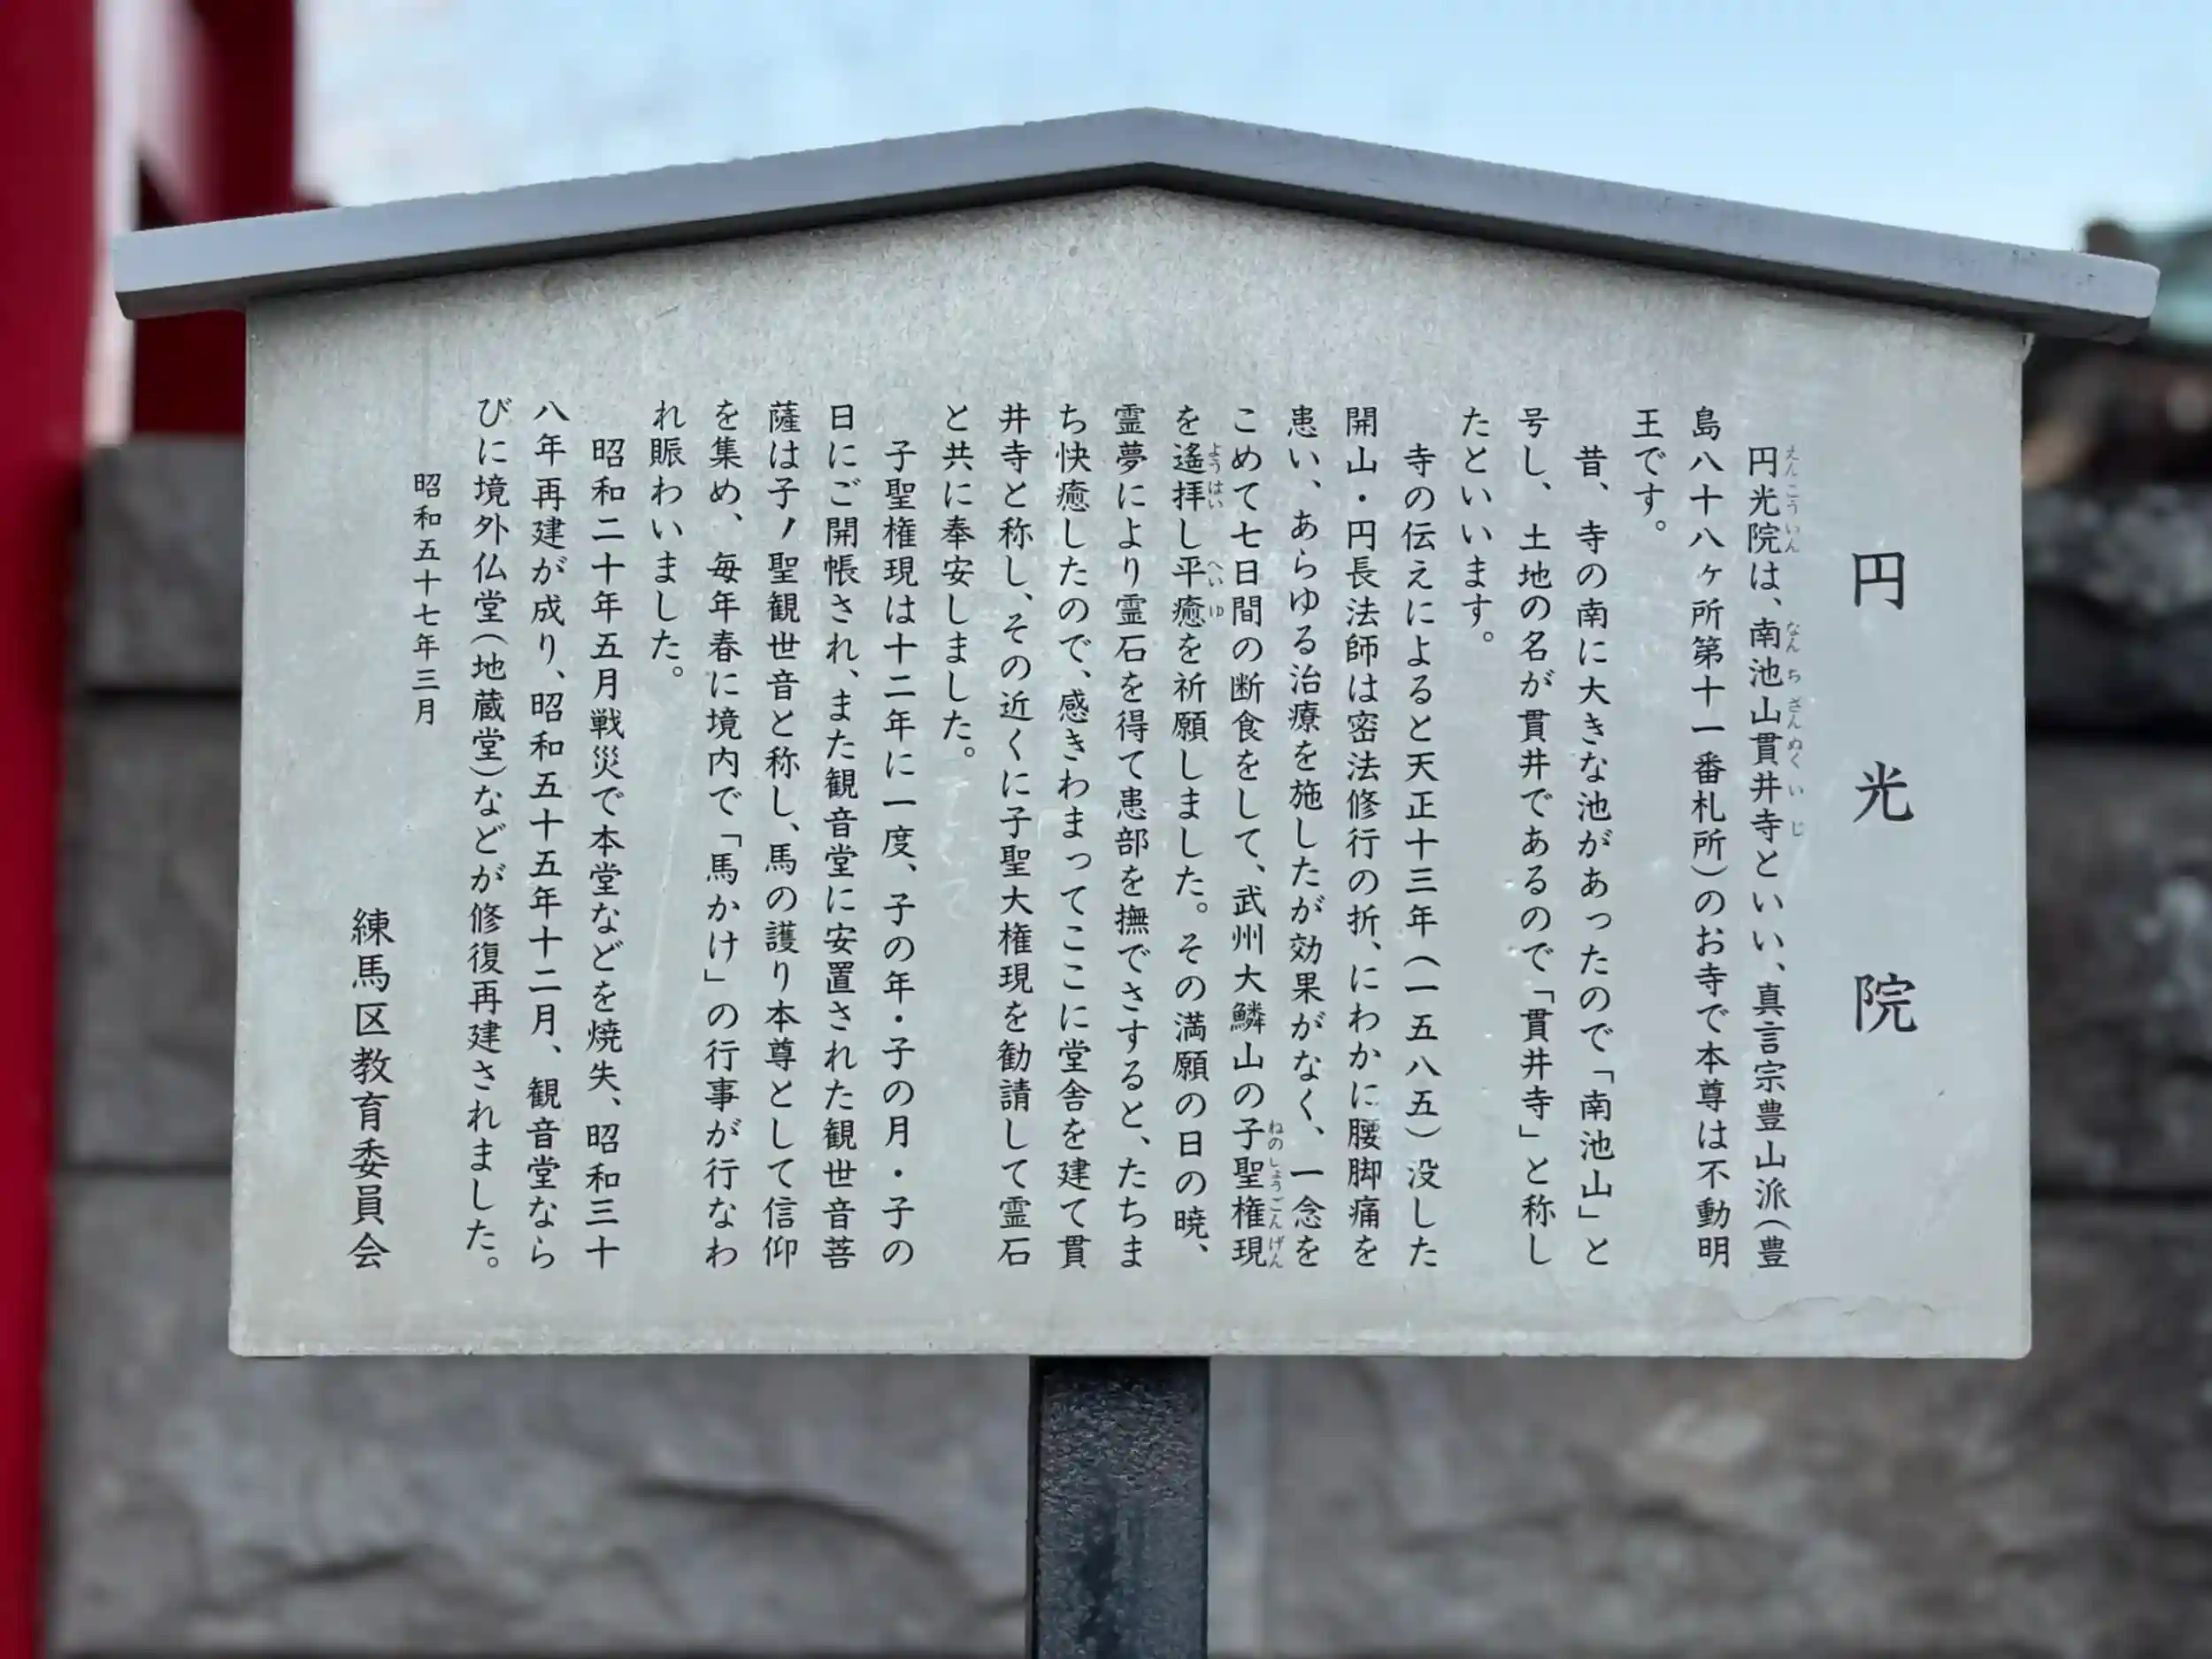 円光院
円光院は、南池山貫井寺といい、真言宗豊山派(豊
島八十八ヶ所第十一番札所)のお寺で本尊は不動明
王です。
昔、寺の南に大きな池があったので「南池山」と
号し、土地の名が貫井であるので「貫井寺」と称し
たといいます。
寺の伝えによると天正十三年(一五八五)没した
開山・円長法師は密法修行の折、にわかに腰脚痛を
患い、あらゆる治療を施したが効果がなく、一念を
こめて七日間の断食をして、武州大鱗山の子聖権現
を遙拝し平癒を祈願しました。その満願の日の暁、
霊夢により霊石を得て患部を撫でさすると、たちま
ち快癒したので、感きわまってここに堂舎を建て貫
井寺と称し、その近くに子聖大権現を勧請して霊石
と共に奉安しました。
子聖権現は十二年に一度、子の年・子の月・子の
日にご開帳され、また観音堂に安置された観世音菩
薩は子ノ聖観世音と称し、馬の護り本尊として信仰
を集め、毎年春に境内で「馬かけ」の行事が行なわ
れ賑わいました。
昭和二十年五月戦災で本堂などを焼失、昭和三十
八年再建が成り、昭和五十五年十二月、観音堂なら
びに境外仏堂(地蔵堂)などが修復再建されました。
昭和五十七年三月
練馬区教育委員会